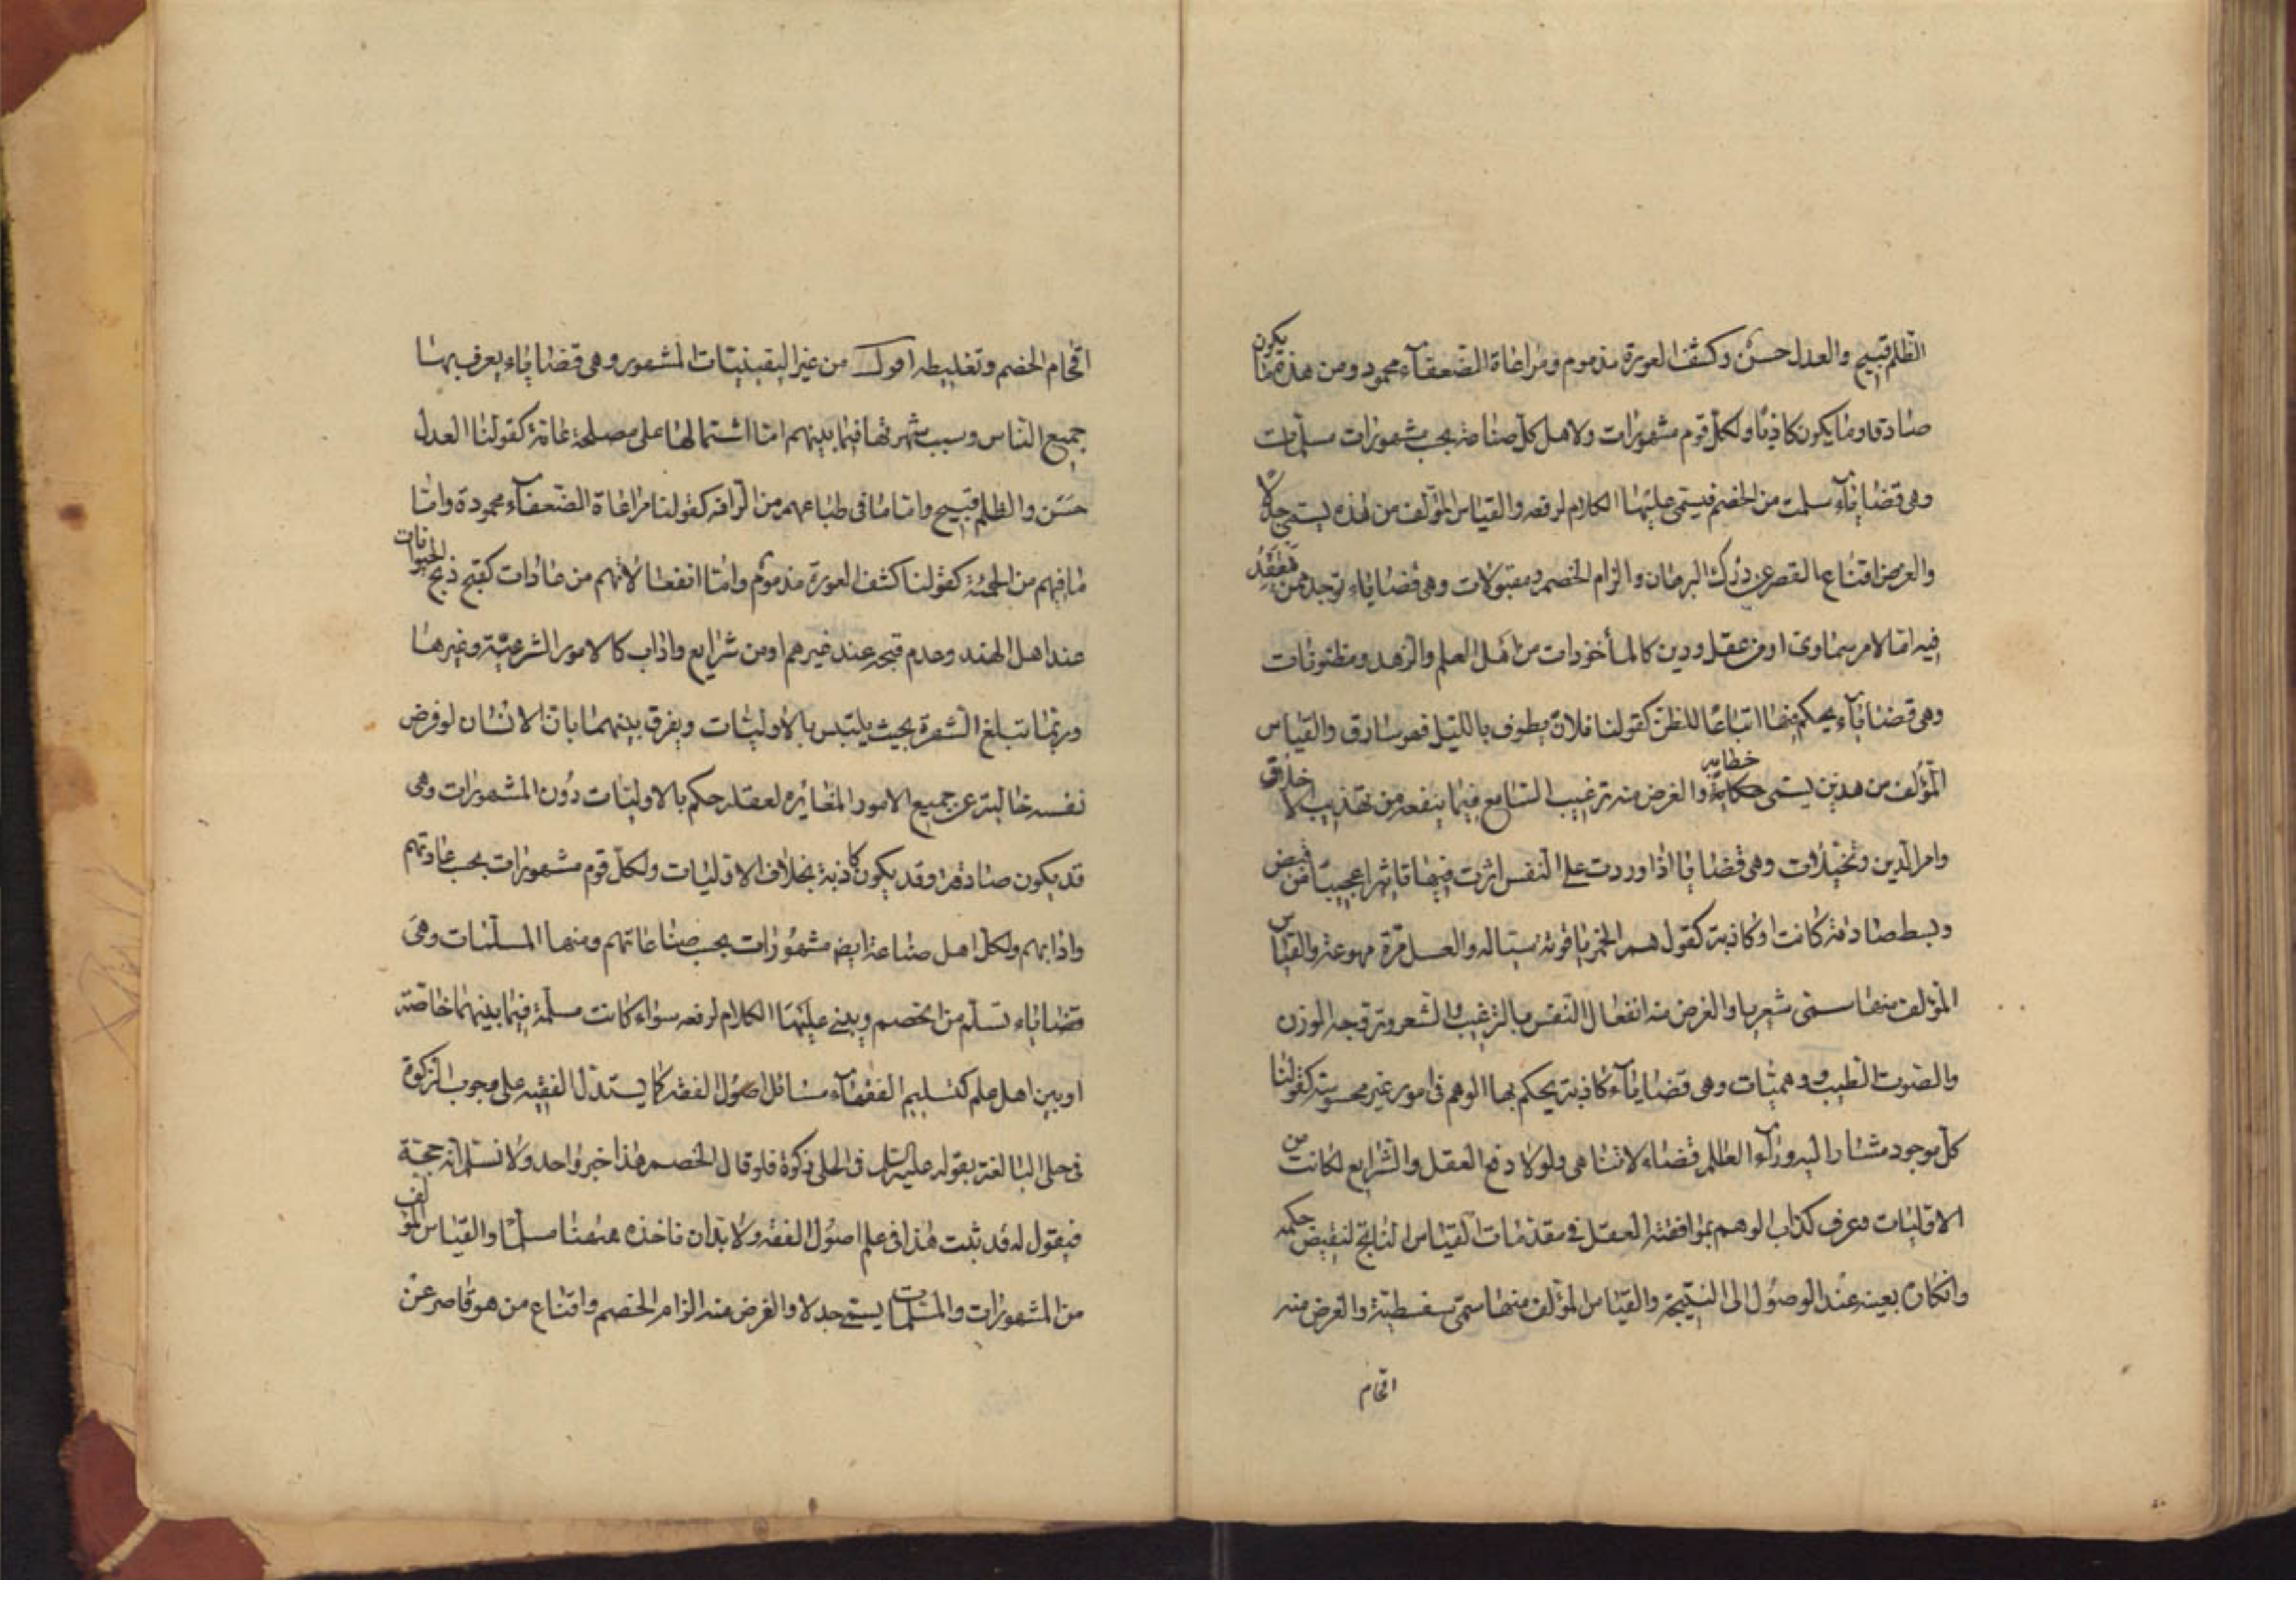 الظلم قبيح والعدل حسن وكشف العورة مذموم ومراعاة الضعفآء محمود ومن هذه ما يكون
صادقا وما يكون كاذبا ولكل قوم مشهورات ولاهل كل صناعة بحسب مشهورات مسلمات
وهى قضاياء سلمت من الخصم فيبتنى عليها الكلام لرفعه والقياس المؤلف من هذه يسمى جدلا
والغرض اقناع القصر عن درك البرهان والزام الخصم ومقبولات وهى قضاياء توجد ممن يعتقد
فيه اما لامر سماوى او مزيد عقل ودين كالمأخوذات من اهل العلم والزهد ومظنونات
وهى قضاياء يحكم فيها اتباعا للظن كقولنا فلان يطوف بالليل فهو سارق والقياس
المؤلف من هذين يسمى خطابه والغرض منه ترغيب السامع فيما ينفعه من تهذيب الاخلاق
وامر الدين ومخيلات وهى قضايا اذا اوردت على النفس اثرت فيها تاثيرا عجيبا من قبض
وبسط صادقة كانت او كاذبة كقولهم الخمر ياقوته سيالة والعسل مرة مهوعة والقياس
المؤلف منها يسمى شعريا والغرض منه انفعال النفس بالترغيب والشعر وتروجه الوزن
والصوت الطيب ووهميات وهى قضاياء كاذبة يحكم بها الوهم فى امور غير محسوسة كقولنا
كل موجود مشار اليه ورآء العالم فضاء لا تناهى ولولا دفع العقل والشرايع لكانت من
الاوليات وعرف كذب الوهم بموافقته العقل فى مقدمات القياس الناتج لنقيض حكمه
وانكاره بعينه عند الوصول الى النتيجة والقياس المؤلف منها سمى سفسطة والغرض منه
افحام
افحام الخصم وتغليطه اقول من غير اليقينيات المشهور وهى قضاياء يعرف بها
جميع الناس وسبب شهرتها فيما بينهم اما اشتمالها على مصلحة عامة كقولنا العدل
حسن والظلم قبيح واما ما فى طباعهم من الرافه كقولنا مراعاة الضعفآء محمودة واما
ما فيهم من الحمية كقولنا كشف العورة مذموم واما انفعالاتهم من عادات كقبح ذبح الحيوانات
عند اهل الهند وعدم قبحه عند غيرهم او من شرايع واداب كالامور الشرعية وغيرها
وربما تبلغ الشهرة بحيث يلتبس بالاوليات ويفرق بينهما بان الانسان لو فرض
نفسه خالية عن جميع الامور المغايره لعقله حكم بالاوليات دون المشهورات وهى
قد يكون صادقة وقد يكون كاذبة بخلاف الاوليات ولكل قوم مشهورات بحسب عادتهم
وادابهم ولكل اهل صناعة ايض مشهورات بحسب صناعاتهم ومنها المسلمات وهى
قضاياء تسلم من الخصم ويبنى عليها الكلام لرفعه سواء كانت مسلمة فيما بينهما خاصة
او بين اهل علم كتسليم الفقهآء مسائل اصول الفقه كما يستدل الفقيه على وجوب الزكوة
فى حلى البالغة بقوله عليه السلم فى الحلى زكوة فلو قال الخصم هذا خبر واحد ولا نسلم انه حجة
فيقول له قد ثبت هذا فى علم اصول الفقه ولا بد ان ناخذه ههنا مسلما والقياس المؤلف
من المشهورات والمسلمات يسمى جدلا والغرض منه الزام الخصم واقناع من هو قاصر عن